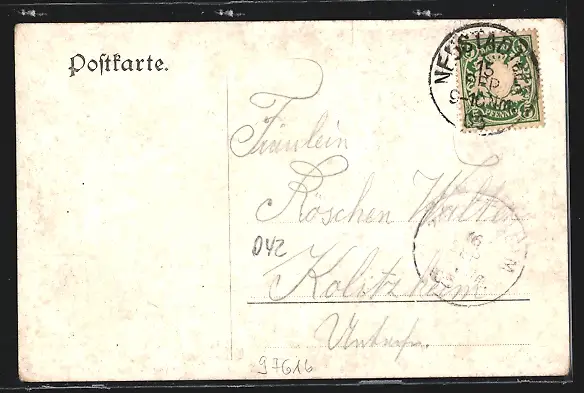 Postkarte.
NEUSTADT
15
SEP
PFENNIG
Fräulein
Röschen Walter
D42
Kolitzheim
Unterfr.
97616